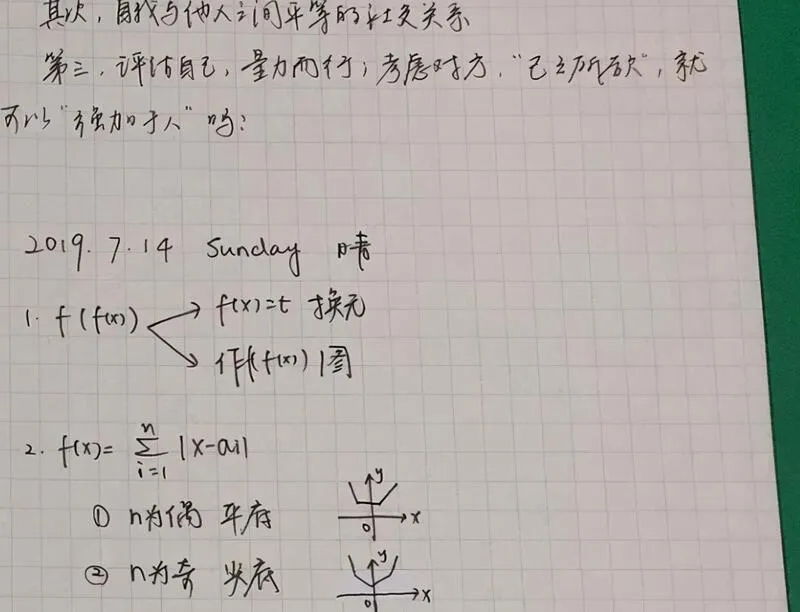 其次，自我与他人之间平等的社交关系
第三，评估自己，量力而行；考虑对方，“己之所欲”，就
可以“强加于人”吗？
2019.7.14 Sunday 晴
1. f(f(x)) f(x)=t 换元
作f(f(x))图
2. f(x)= n∑i=1 |x-ai|
① n为偶 平底
y
0 x
② n为奇 尖底
y
0 x